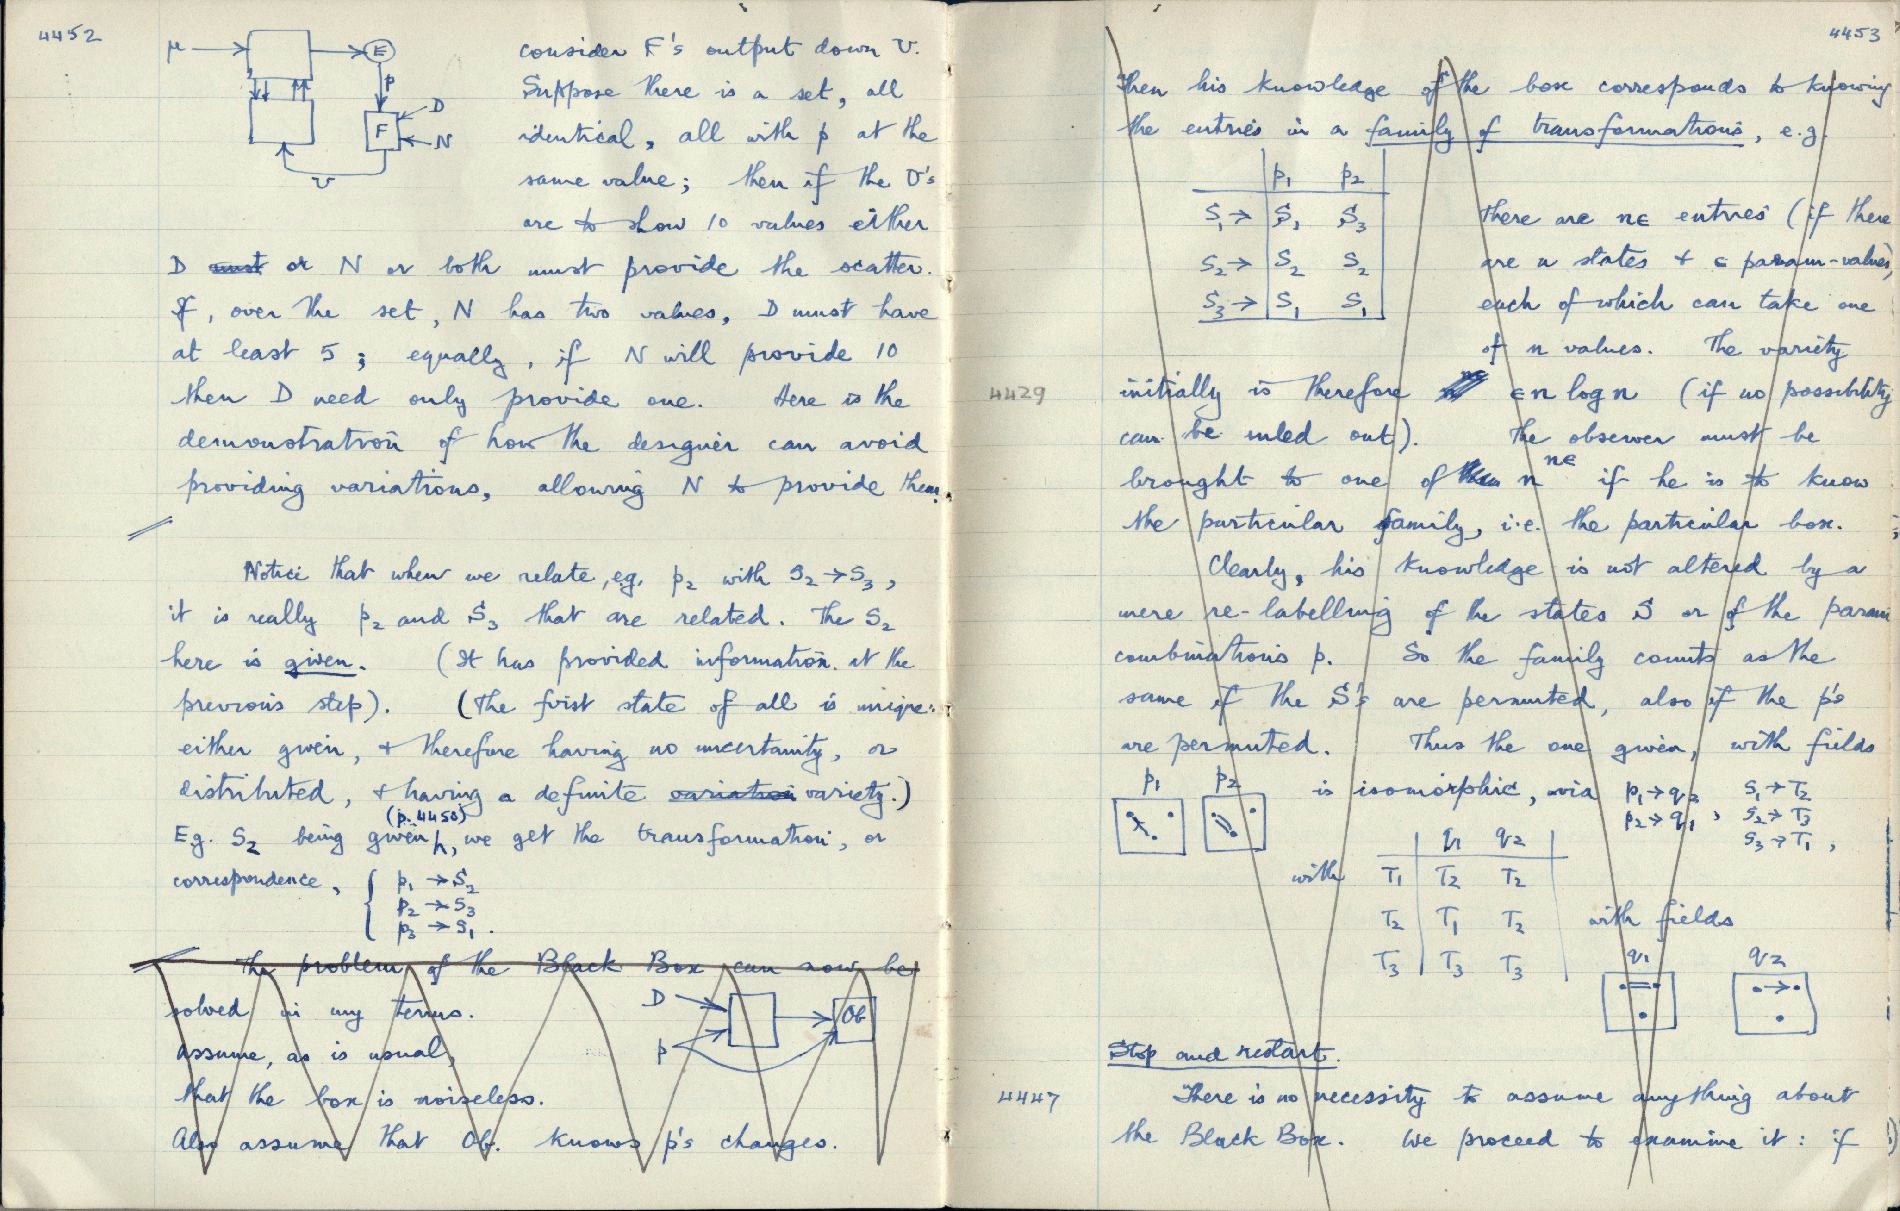 4452
μ → E
p
D
F
N
v
consider F's output down v.
Suppose there is a set, all
identical, all with p at the
same value; then if the v's
are to show 10 values either
D must or N or both must provide the scatter.
If, over the set, N has two values, D must have
at least 5; equally, if N will provide 10
then D need only provide one. Here is the
demonstration of how the designer can avoid
providing variations, allowing N to provide them.
Notice that when we relate, eg. p2 with S2→S3,
it is really p2 and S3 that are related. The S2
here is given. (It has provided information at the
previous step). (The first state of all is unique:
either given, + therefore having no uncertainty, or
distributed, + having a definite variation variety.)
(p. 4450)
Eg. S2 being given, we get the transformation, or
correspondence, { p1 → S2
p2 → S3
p3 → S1.
The problem of the Black Box can now be
solved in my terms.
D
Ob
p
Assume, as is usual,
that the box is noiseless.
Also assume that Ob. knows p's changes.
4453
Then his knowledge of the box corresponds to knowing
the entries in a family of transformations, e.g.
p1 p2
S1→ S3 S3
S2→ S2 S2
S3→ S1 S1
There are nϵ entries (if there
are n states + ϵ param-values)
each of which can take one
of n values. The variety
4429
initially is therefore ϵn log n (if no possibility
can be ruled out). The observer must be
brought to one of n^nϵ if he is to know
the particular family, i.e. the particular box.
Clearly, his knowledge is not altered by a
mere re-labelling of the states S or of the param
combinations p. So the family counts as the
same if the S's are permuted, also if the p's
are permuted. Thus the one given, with fields
p1 p2 is isomorphic, via p1→q2
p2→q1, S1→T2
S2→T3
S3→T1,
with
q1 q2
T1 T2 T2
T2 T1 T2
T3 T3 T3
with fields
q1 q2
Stop and restart.
4447
There is no necessity to assume anything about
the Black Box. We proceed to examine it: if